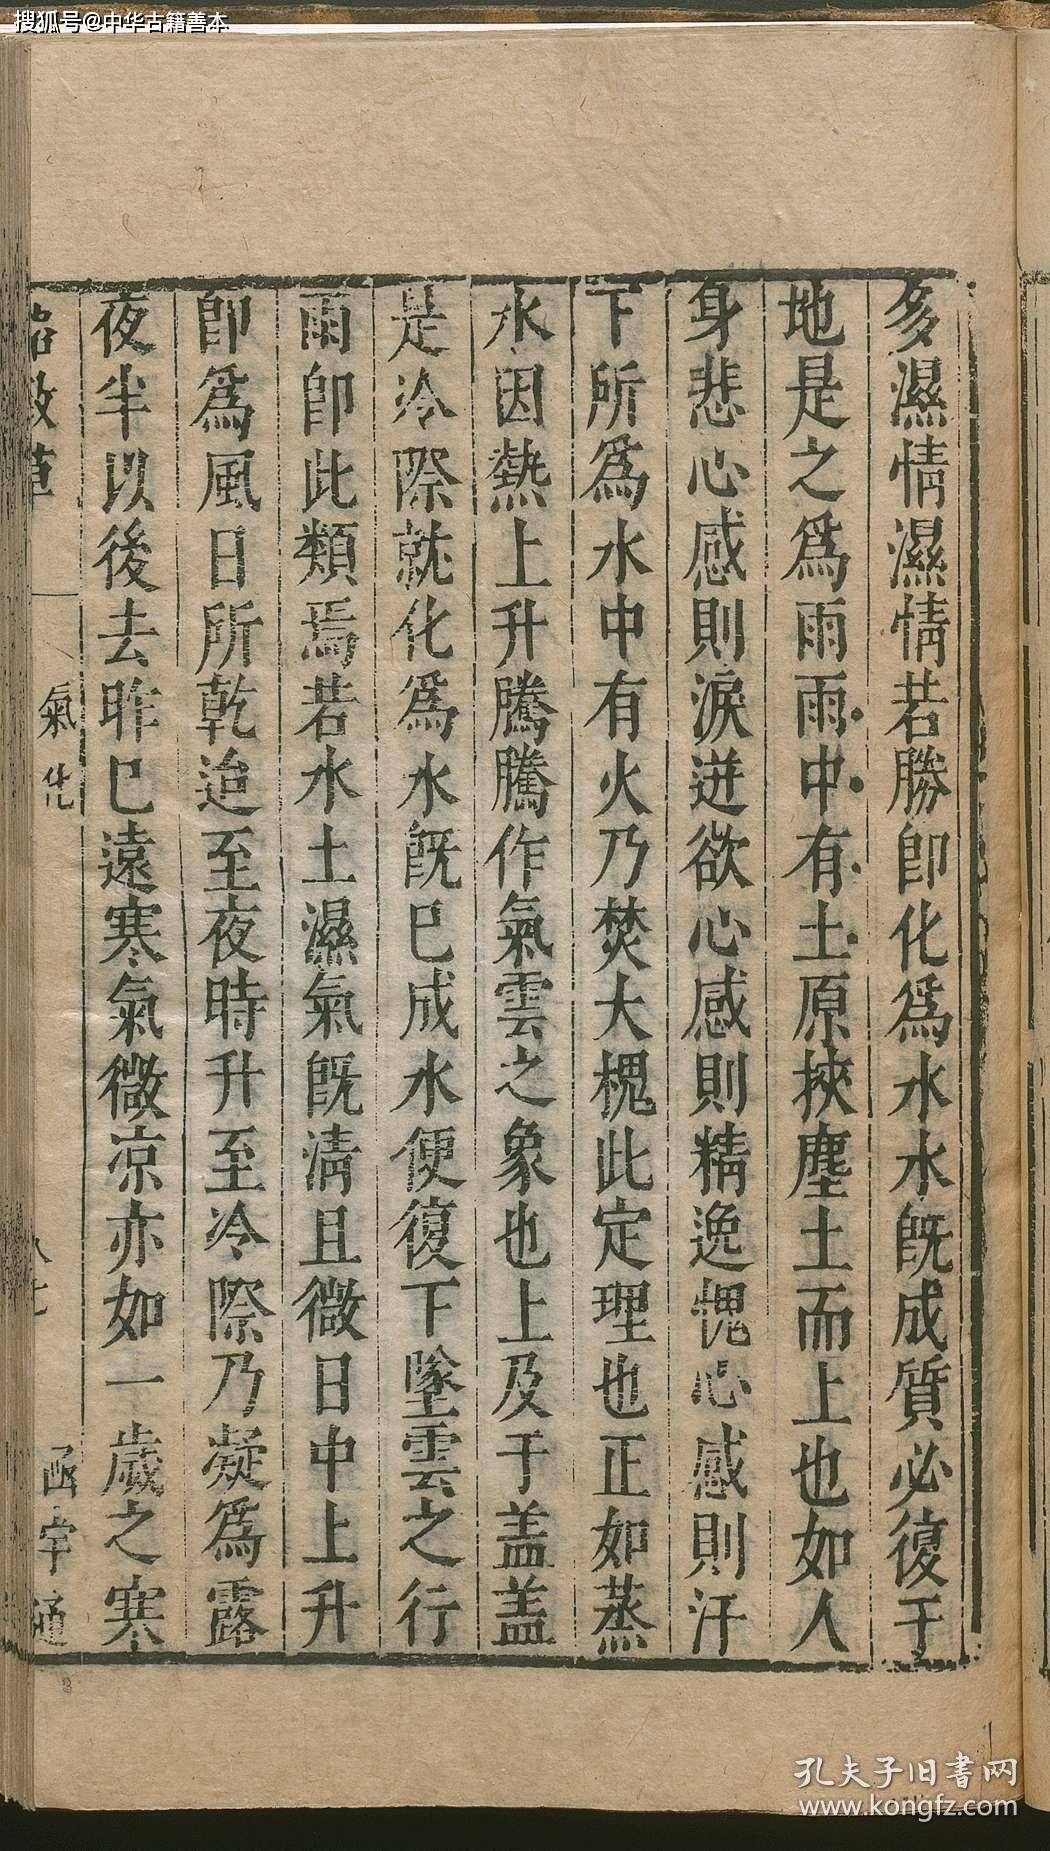 搜狐号@中华古籍善本
多濕情濕情若勝即化爲水水既成質必復于
地是之爲雨雨中有土原挾塵土而上也如人
身悲心感則淚迸欲心感則精逸愧心感則汗
下所爲水中有火乃焚大槐此定理也正如蒸
水因熱上升騰騰作氣雲之象也上及于盖盖
是冷際就化爲水既巳成水便復下墜雲之行
雨即此類焉若水土濕氣既清且微日中上升
即爲風日所乾迨至夜時升至冷際乃凝爲露
夜半以後去昨巳遠寒氣微凉亦如一歲之寒
則草
氣化
函宇通
孔夫子旧书网
www.kongfz.com